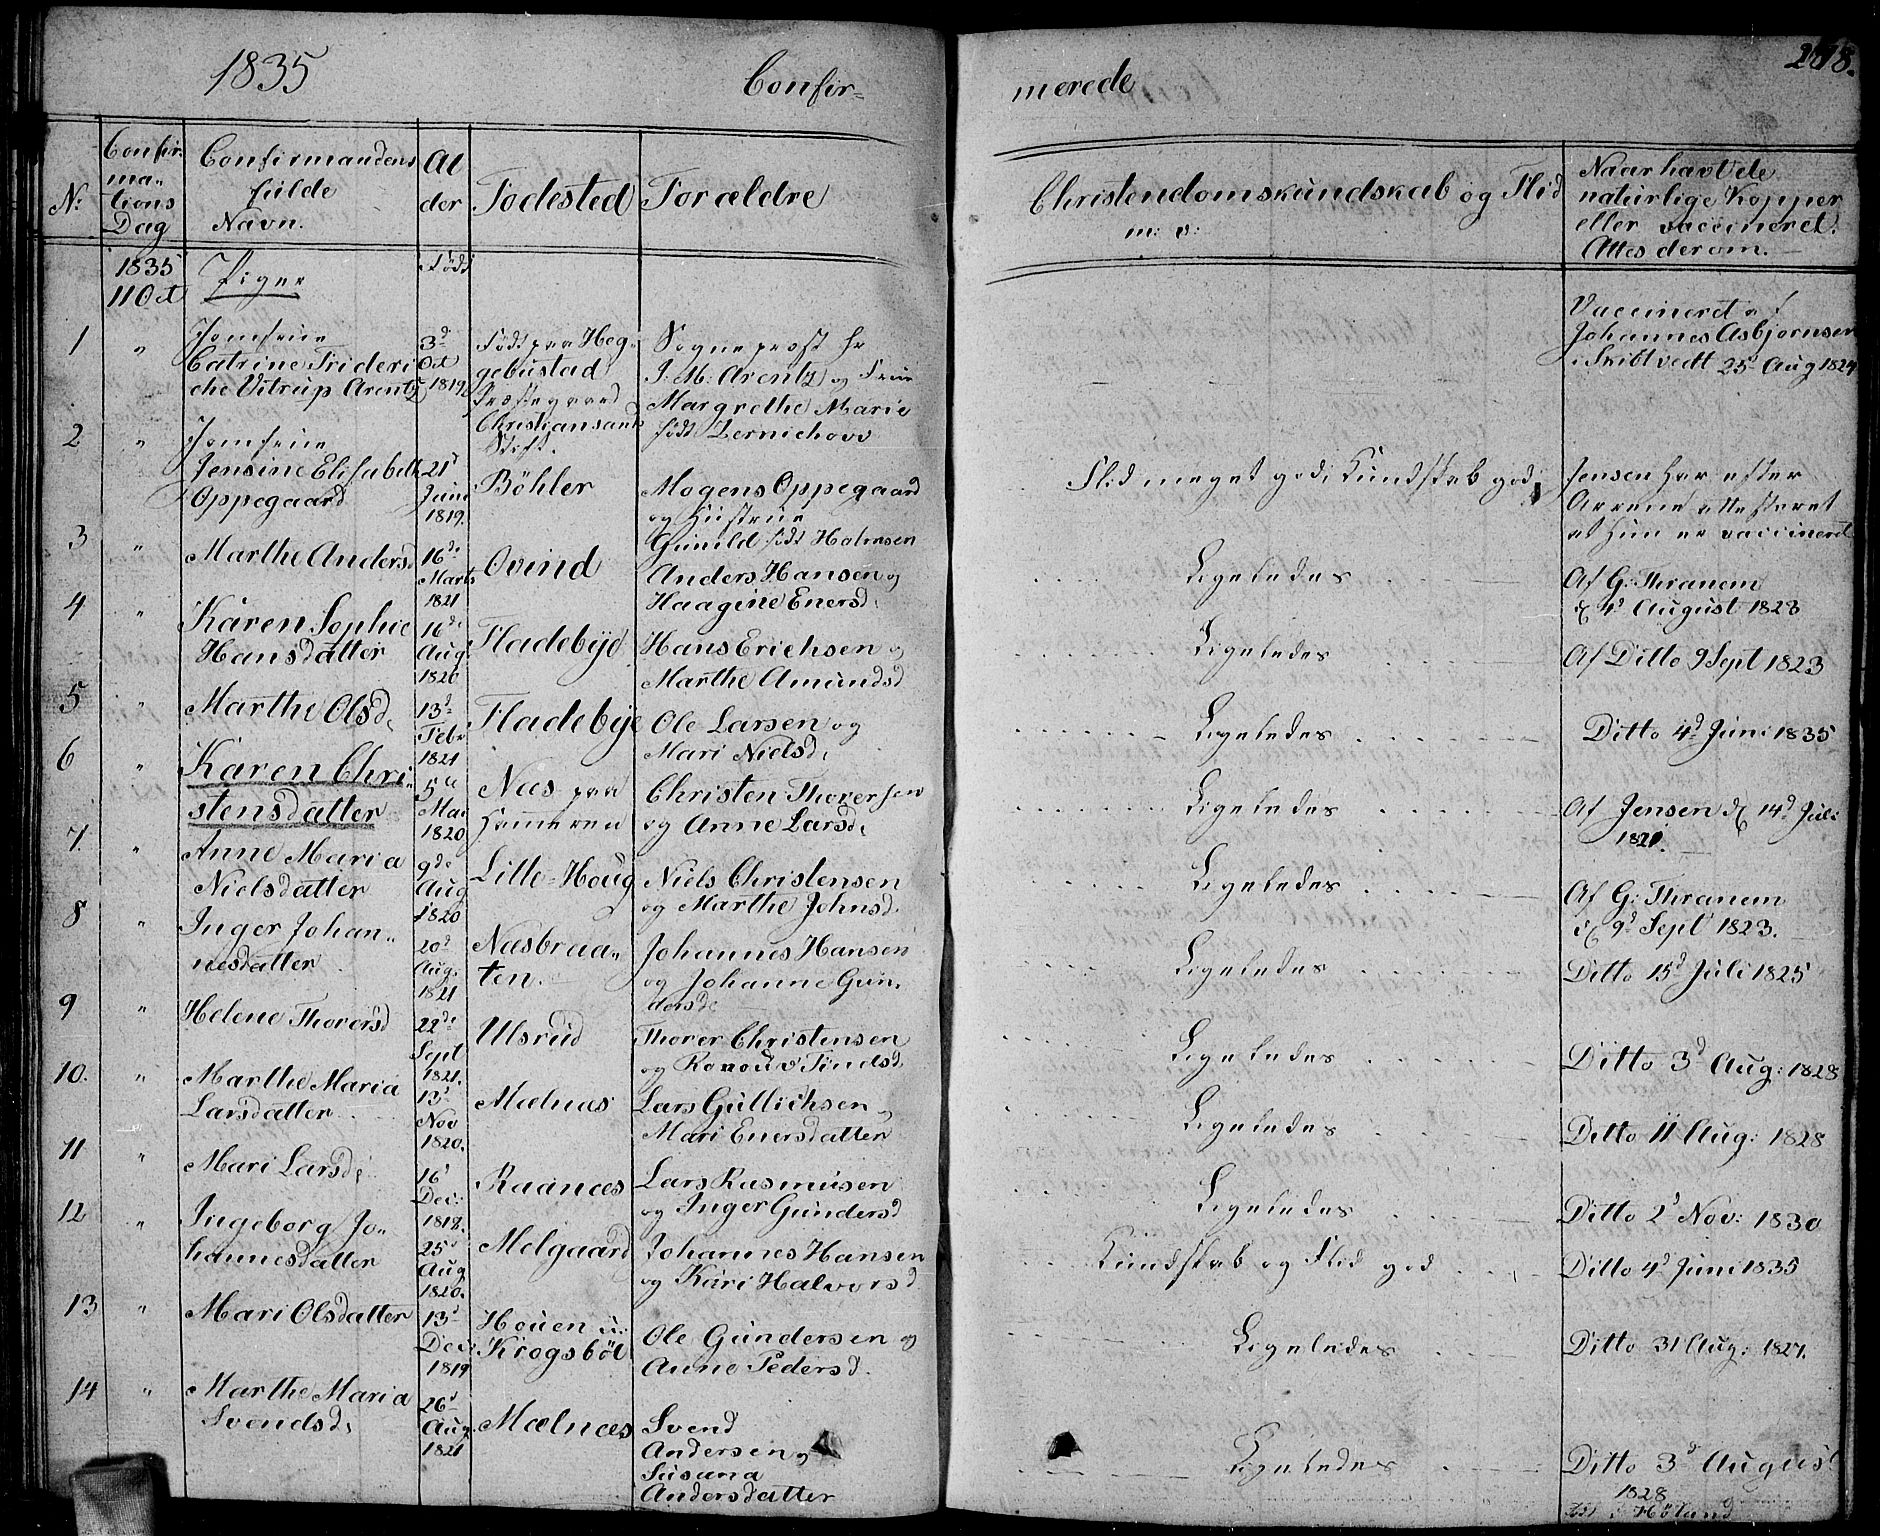 1835
Confir=
merede
218.
N:
Confir:
ma„
tions
Dag
Confirmandens
fulde
Navn.
Al
der
Födested
Forældre
Christendomskundskab og Flid
m: v:
Naar havt de
naturlige Kopper
eller vaccineret.
Attes derom.
1835
11 Oct
Piger
Födt
1
„
Jomfrue
Catrine Frideri
che Vitrup Arentz
3d
Oct
1819
Födt paa Heg„
gebustad
Præstegaard
Christiansands
Stift.
Sogneprost Hr
J: M: Arentz og Frue
Margrethe Marie
födt
Vaccineret af
Johannes Asbjornsen
i Skibtvedt 25 Aug 1824
2
„
Jomfrue
Jensine Elisabeth
Oppegaard
21
Juni
1819.
Böhler
Mogens Oppegaard
og Hustrue
Gunild födt Halvorsen
Flid meget god, Kundskab god,
Jensen har efter
attesteret
at Hun er vaccineret
3
„
Marthe Andersd
16de
Marts
1821
Ovind
Anders Hansen og
Haagine Enersd:
Ligeledes
Af G: Thranem
d 4d August 1823
4
„
Karen Sophie
Hansdatter
16de
Aug
1820
Fladebÿe
Hans Erichsen og
Marthe Amundsd
Ligeledes
Af Ditto 9 Sept 1823
5
„
Marthe Olsd:
13d
Febr
1821
Fladebÿe
Ole Larsen og
Mari Nielsd:
Ligeledes
Ditto 4d Juni 1835
6
„
Karen Chri„
stensdatter
5te
Mai
1820
Næs paa
Hemeren
Christen Thorersen
og Anne Larsd:
Ligeledes
Af Jensen d 14d Juli
1821.
7.
„
Anne Maria
Nielsdatter
9de
Aug
1820
Lille=Houg
Niels Christensen
og Marthe Johnsd.
Ligeledes
Af G: Thranem
d 9d Sept 1823.
8
„
Inger Johan„
nesdatter
20d
Aug.
1821
Næsbraa„
ten.
Johannes Hansen
og Johanne Gun„
dersd:
Ligeledes
Ditto 15d Juli 1825
9
„
Helene Thorersd
22de
Sept
1821.
Ulsrud
Thorer Christensen
og Ronouv
Ligeledes
Ditto 3d Aug: 1828
10.
„
Marthe Maria
Larsdatter
13d
Nov
1820.
Mælnæs
Lars Gullichsen
Mari Enersdatter
Ligeledes
Ditto 11 Aug: 1828
11
„
Mari Larsd:
16d
Dec:
1818.
Raanæs
Lars Rasmusen
og Inger Gundersd
Ligeledes
Ditto 2d Nov: 1830
12
„
Ingeborg Jo„
hannesdatter
25d
Aug
1820.
Melgaard
Johannes Hansen
og Kari Halvorsd
Kundskab og Flid god
Ditto 4d Juni 1835
13
„
Mari Olsdatter
13d
Dec:
1819
Houen u:
Krogsböl
Ole Gundersen og
Anne Pedersd.
Ligeledes
Ditto 31 Aug: 1827.
14
„
Marthe Maria
Svendsd:
26d
Aug.
1821
Mælnæs
Svend
Andersen og
Susana
Andersdatter
Ligeledes
Ditto 3d August
1828
i Höland